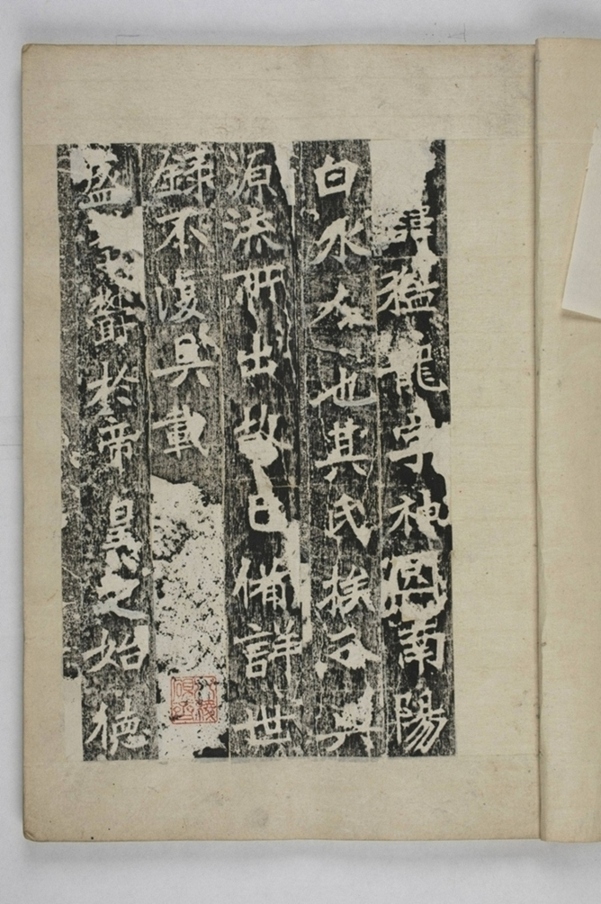 諱猛龍字神囧南陽
白水人也其氏族分興
源流所出故已備詳世
錄不復具載
盛 於帝皇之始德